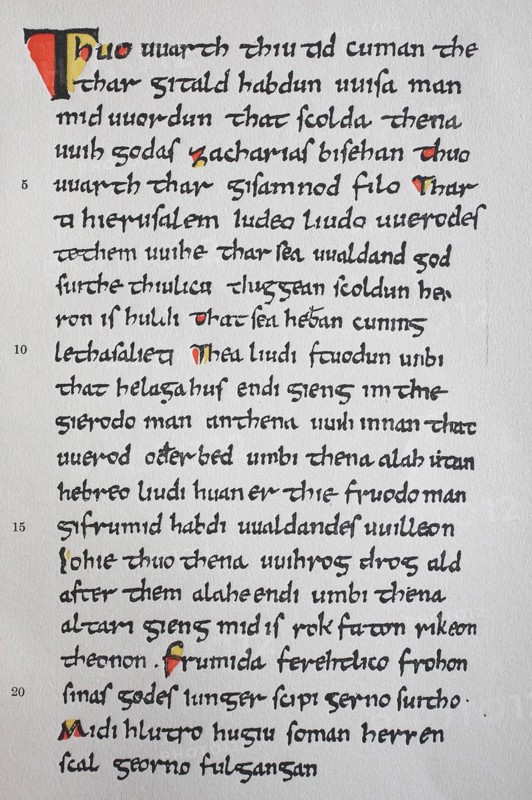 Thuo uuarth thiu tid cuman the
thar gitald habdun uuisa man
mid uuordun that scolda thena
uuih godas Zacharias bisehan thuo
5 uuarth thar gisamnod filo Thar
ti hierusalem iudeo liudo uuerodes
te them uuihe thar sea uualdand god
suithe thiulico thiggean scoldun her
ron is huldi That sea heban cuning
10 lethas alieti Thea liudi stuodun umbi
that helaga hus endi gieng im the
gierodo man an thena uuih innan that
uuerod oder bed umbi thena alah utan
hebreo liudi huan er thie fruodo man
15 gifrumid habdi uualdandes uuilleon
So hie thuo thena uuihrog drog ald
after them alahe endi umbi thena
altari gieng mid is rokfaton rikeon
theonon. Frumida ferehtlico frohon
20 sinas godes iungerscipi gerno suitho.
Midi hluttro hugiu so man herren
scal georno fulgangan